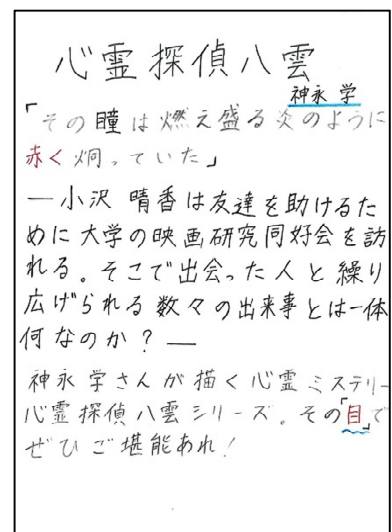 心霊探偵八雲
神永 学
「その瞳は燃え盛る炎のように
赤く炯っていた」
―小沢 晴香は友達を助けるた
めに大学の映画研究同好会を訪
れる。そこで出会った人と繰り
広げられる数々の出来事とは一体
何なのか?―
神永 学さんが描く心霊ミステリー
心霊探偵八雲シリーズ。その「目」で
ぜひご堪能あれ!